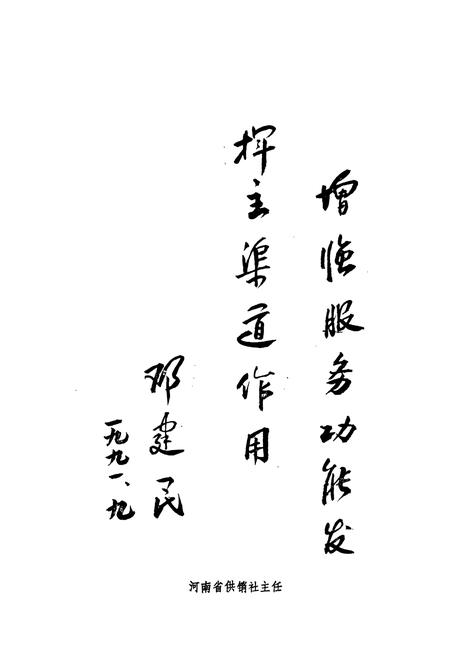 增强服务功能发
挥主渠道作用
邓建民
一九九一、九
河南省供销社主任